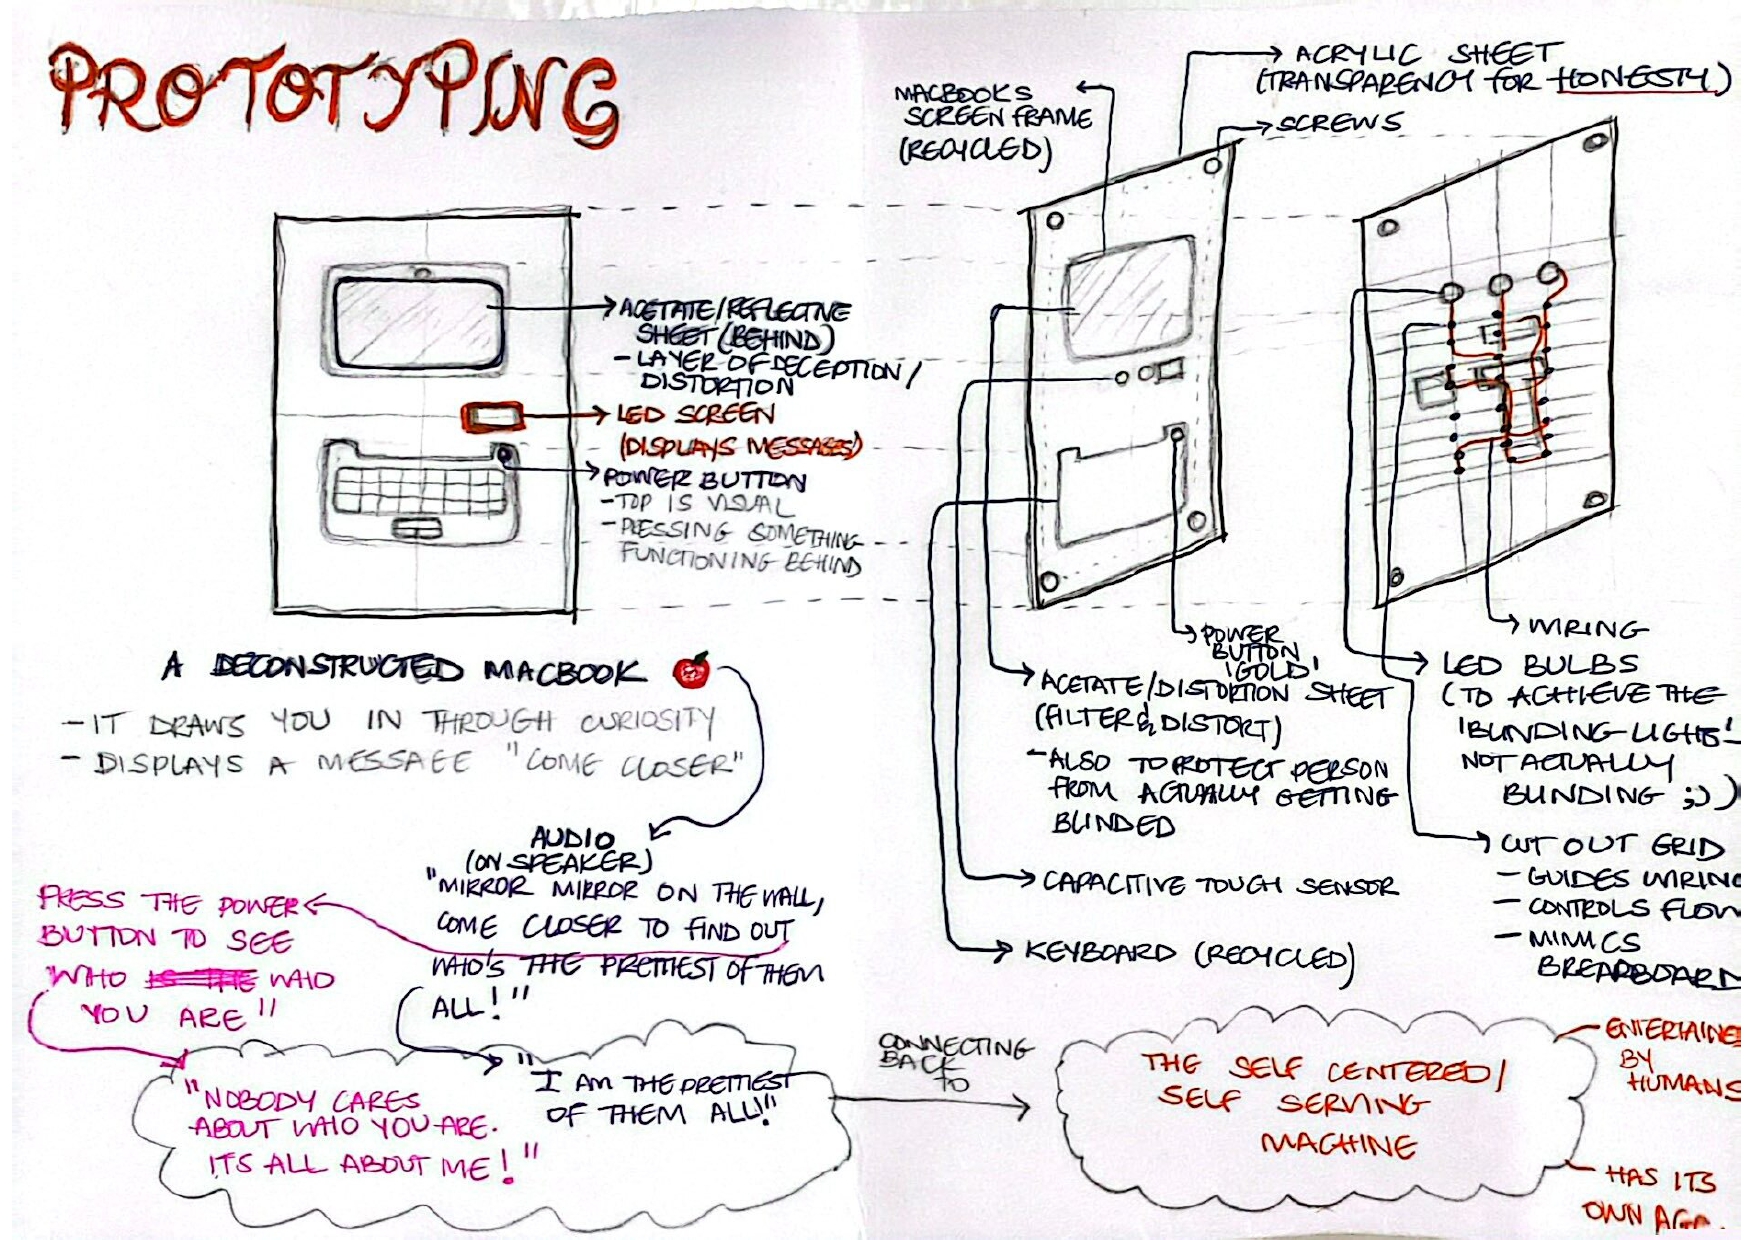 PROTOTYPING
MACBOOKS
SCREEN FRAME
(RECYCLED)
ACRYLIC SHEET
(TRANSPARENCY FOR HONESTY)
SCREWS
ACETATE/REFLECTIVE
SHEET (BEHIND)
- LAYER OF DECEPTION/
DISTORTION
LED SCREEN
(DISPLAYS MESSAGES)
POWER BUTTON
- TOP IS VISUAL
- PRESSING SOMETHING
FUNCTIONING BEHIND
A DECONSTRUCTED MACBOOK
- IT DRAWS YOU IN THROUGH CURIOSITY
- DISPLAYS A MESSAGE "COME CLOSER"
AUDIO
(ON SPEAKER)
"MIRROR MIRROR ON THE WALL,
COME CLOSER TO FIND OUT
WHO'S THE PRETTIEST OF THEM
ALL!"
PRESS THE POWER
BUTTON TO SEE
WHO WHO
YOU ARE"
"NOBODY CARES
ABOUT WHO YOU ARE.
ITS ALL ABOUT ME!"
"I AM THE PRETTIEST
OF THEM ALL!"
CONNECTING
BACK
TO
THE SELF CENTERED/
SELF SERVING
MACHINE
POWER
BUTTON
'GOLD'
ACETATE/DISTORTION SHEET
(FILTER & DISTORT)
- ALSO TO PROTECT PERSON
FROM ACTUALLY GETTING
BLINDED
CAPACITIVE TOUGH SENSOR
KEYBOARD (RECYCLED)
WIRING
LED BULBS
(TO ACHIEVE THE
'BLINDING-LIGHT'-
NOT ACTUALLY
BLINDING ;))
CUT OUT GRID
- GUIDES WIRING
- CONTROLS FLOW
- MIMICS
BREADBOARD
- ENTERTAINED
BY
HUMANS
- HAS ITS
OWN